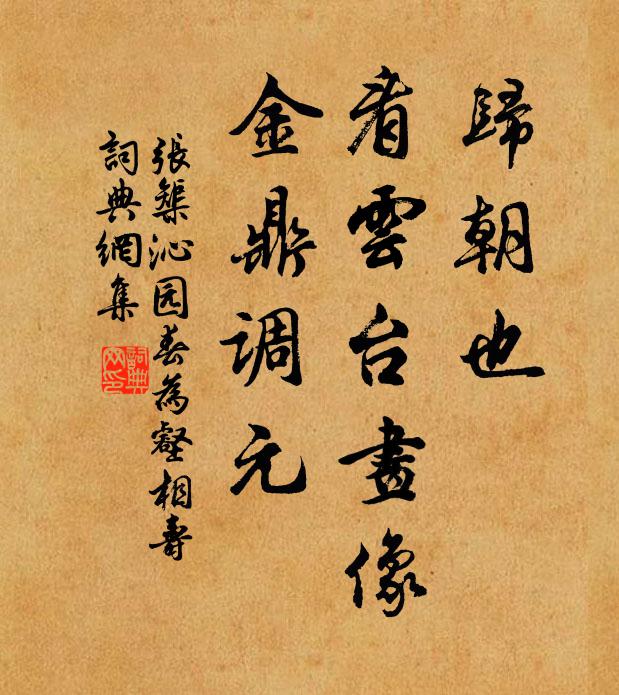 歸朝也
看雲台畫像
金鼎调元
張榘沁园春為壑相壽
詞典網集
詞典網印